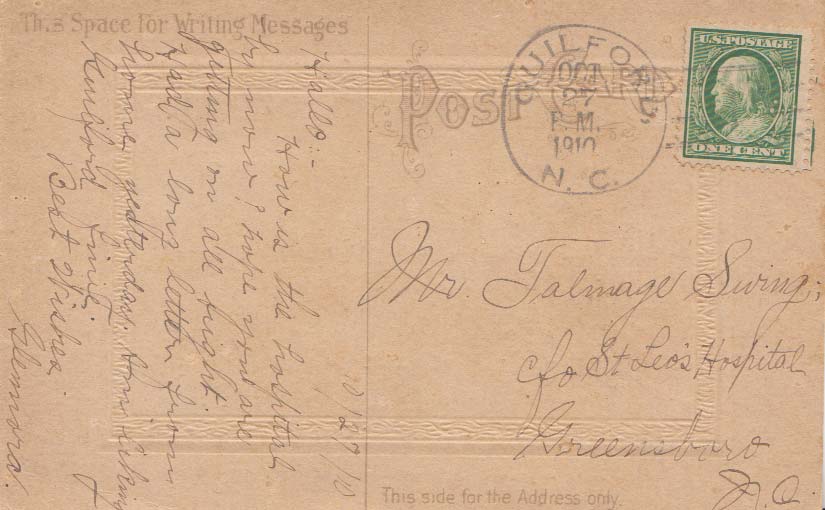 This Space for Writing Messages
POST CARD
GUILFORD,
OCT
27
P.M.
1910
N. C.
U.S. POSTAGE
ONE CENT
10/27/10
Hallo:-
How is the hospital
by now? hope you are
getting on all right
Had a long letter from
home yesterday. Am liking
Guilford fine.
Best Wishes
Glennora.
Mr. Talmage Swing;
c/o St Leo's Hospital
Greensboro
N.C.
This side for the Address only.